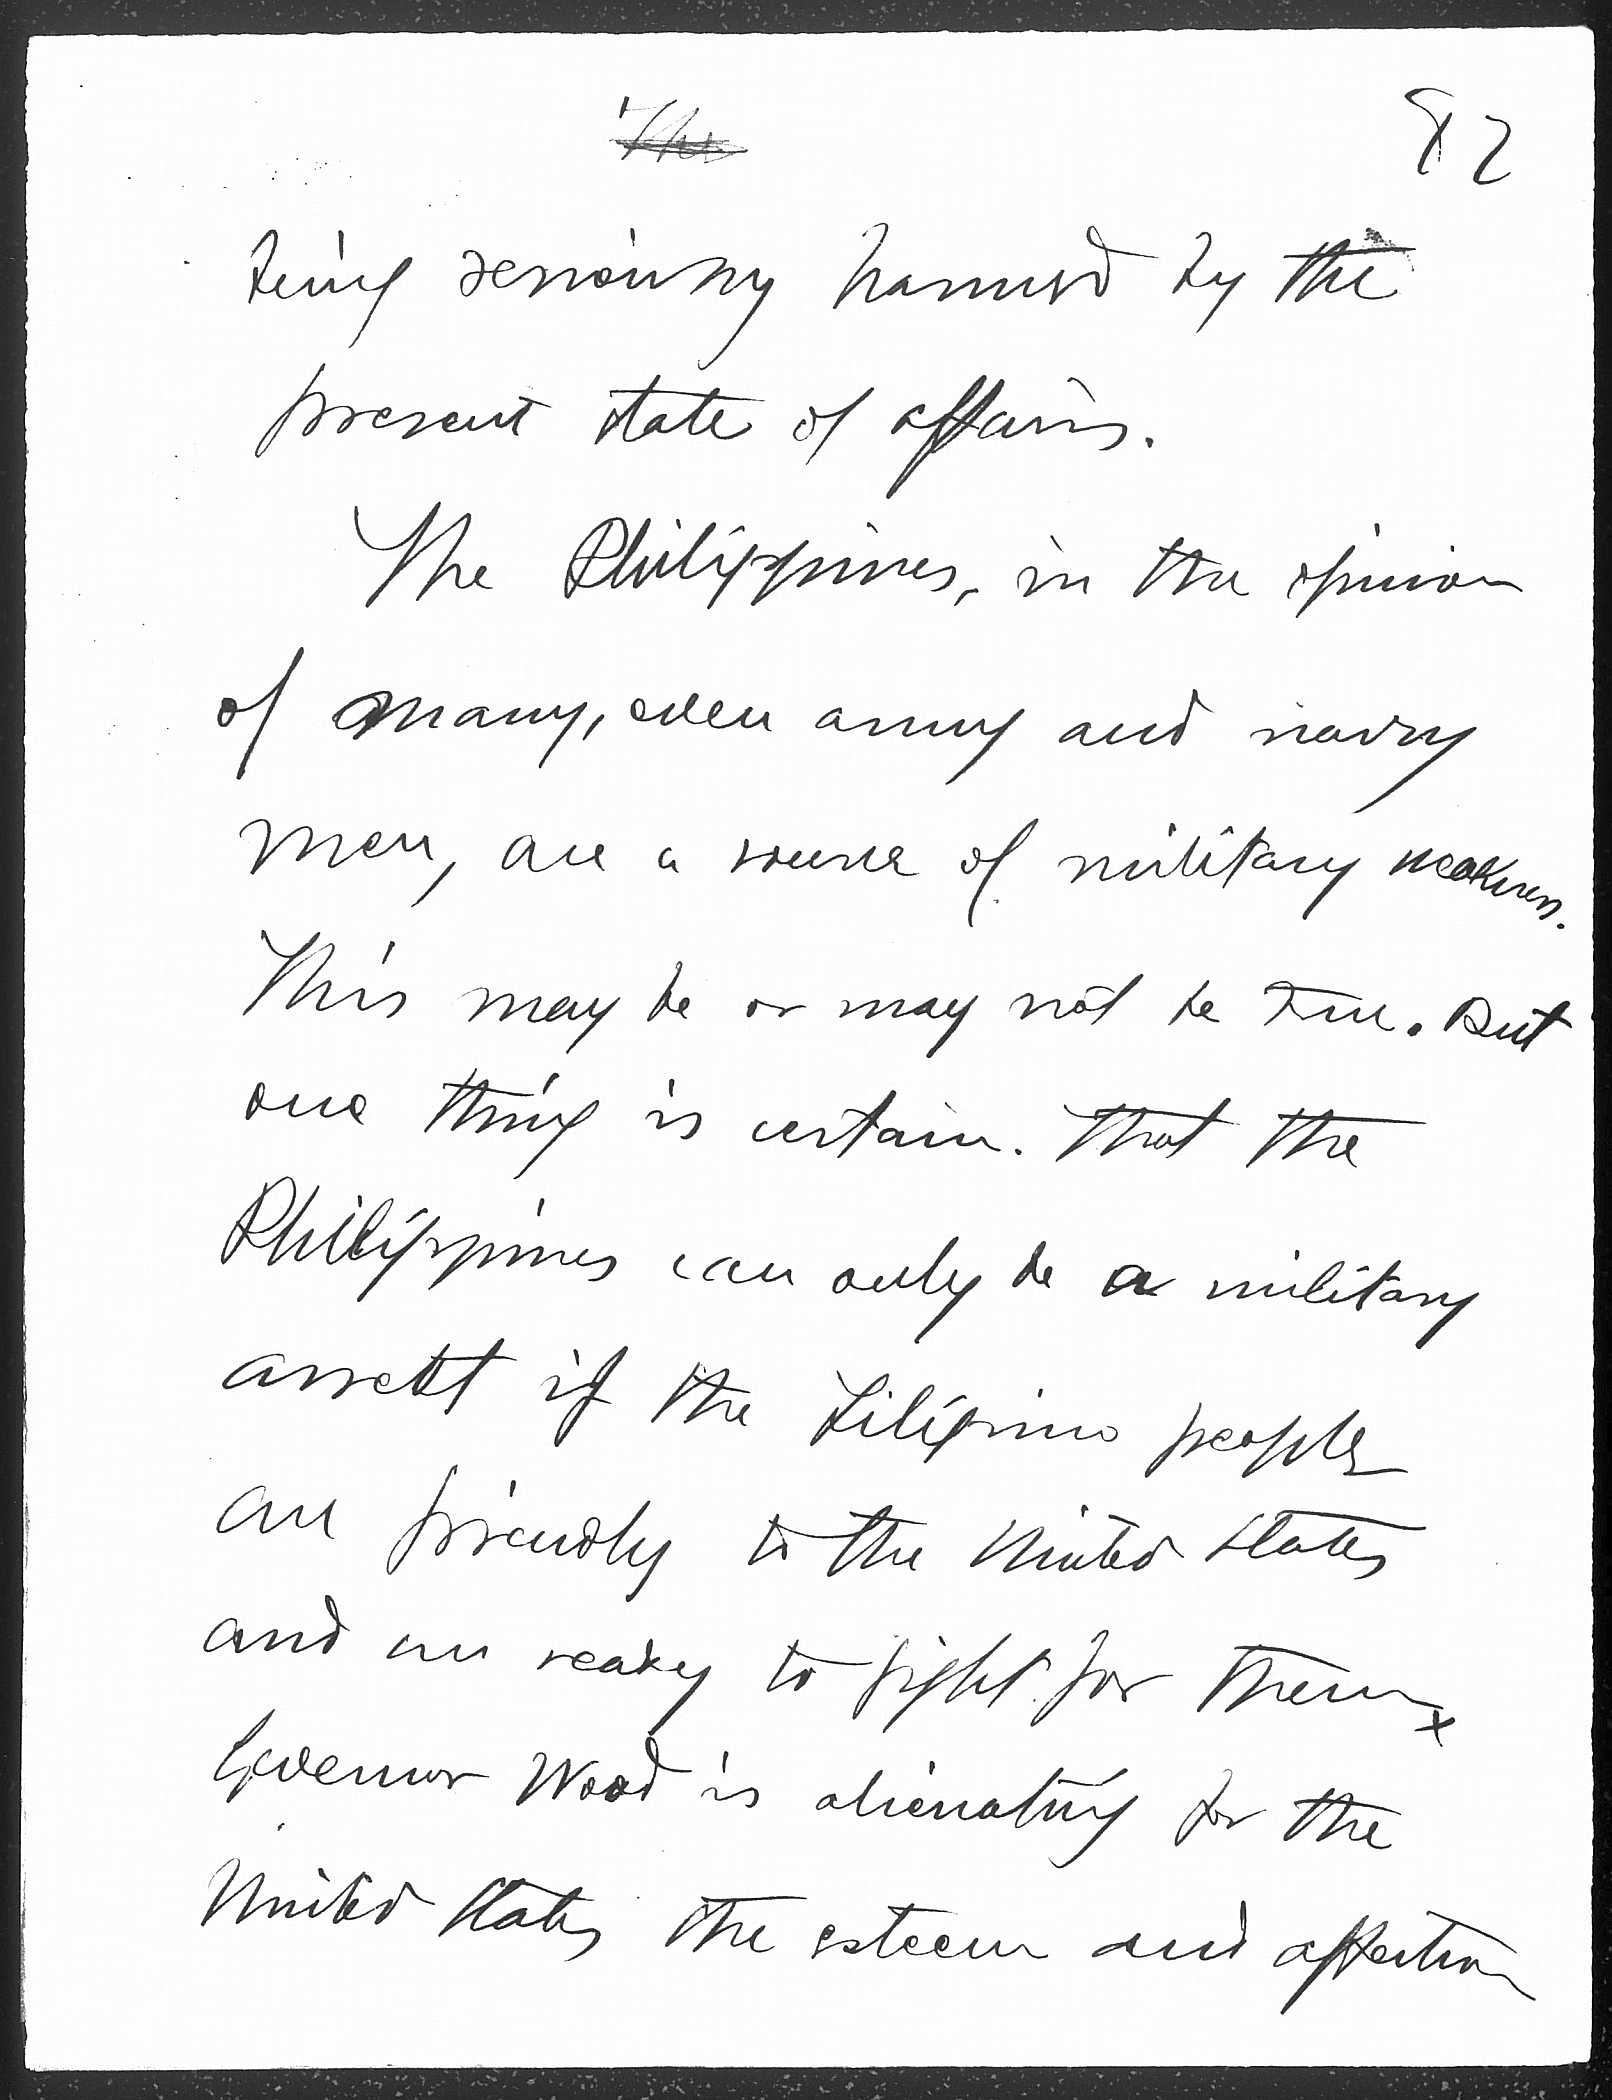 The 82
being seriously harmed by the
present state of affairs.
The Philippines, in the opinion
of many, even army and navy
men, are a source of military weakness.
This may be or may not be true. But
one thing is certain. That the
Philippines can only be a military
assett if the Filipino people
are friendly to the United States
and are ready to fight for them x
Governor Wood is alienating for the
United States the esteem and affection